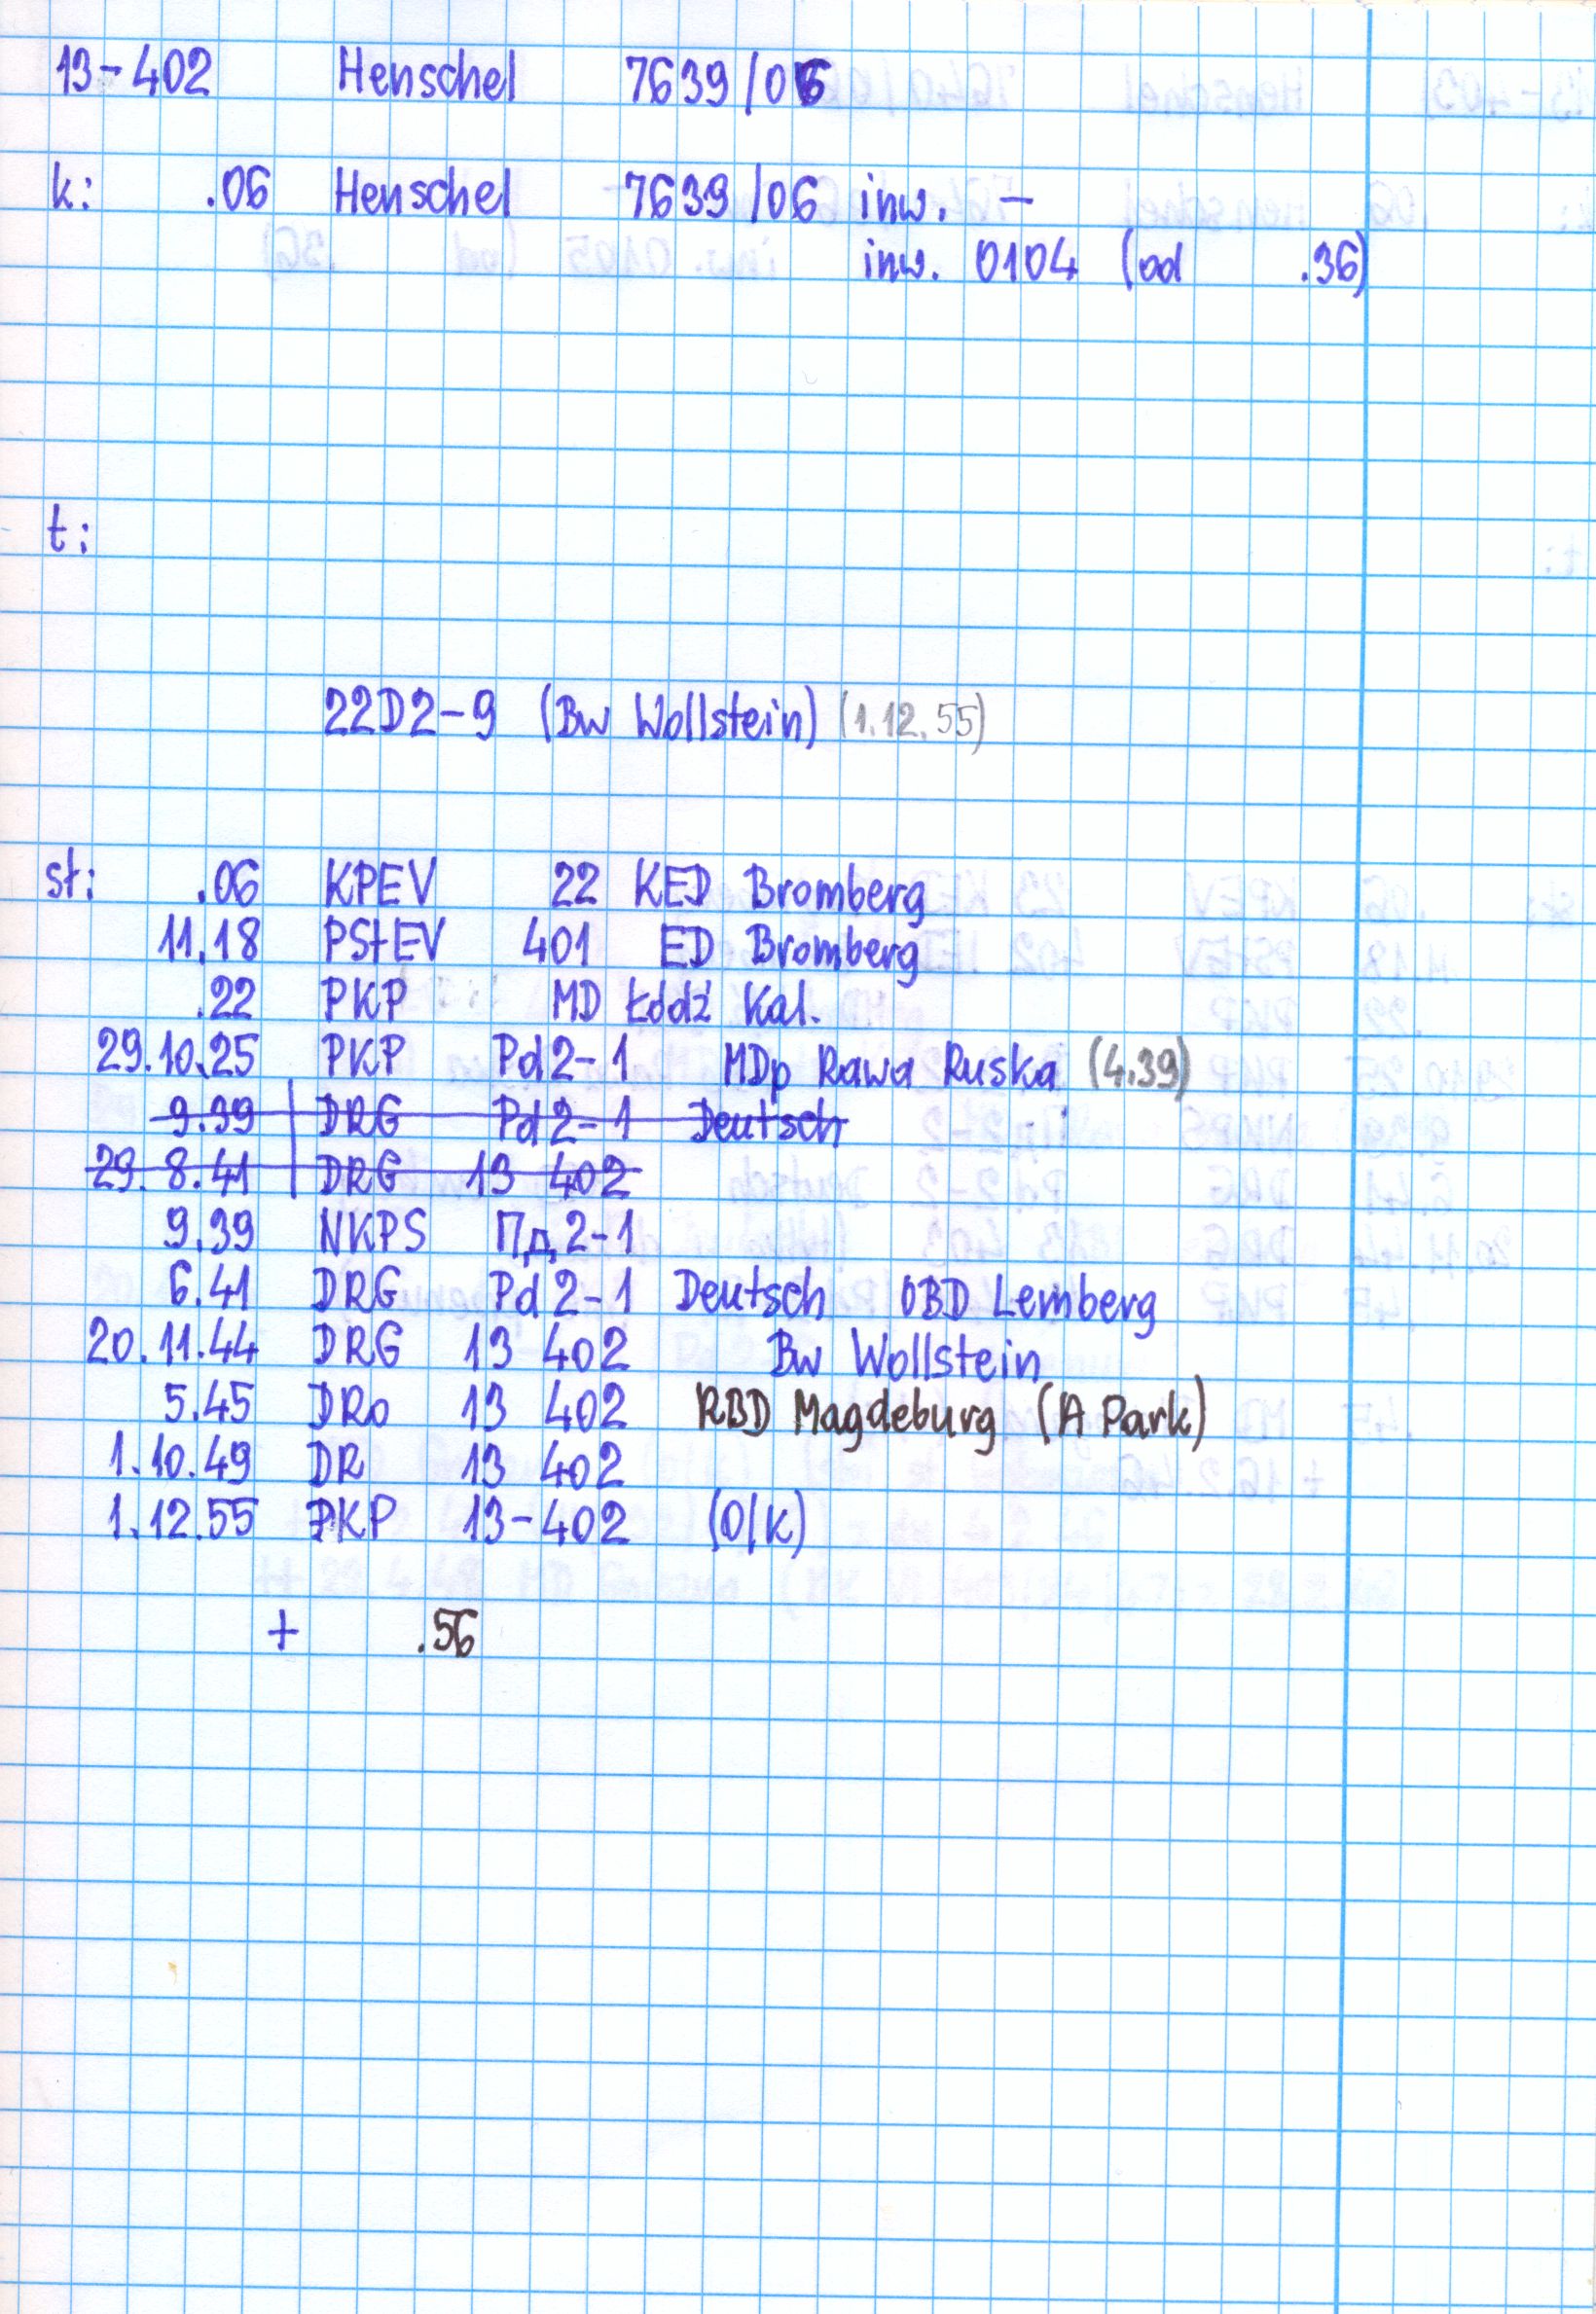 13-402 Henschel 7639/06
k: .06 Henschel 7639/06 inw. –
inw. 0104 (od .36)
t:
22D2-9 (Bw Wollstein) (1.12.55)
st: .06 KPEV 22 KED Bromberg
11.18 PStEV 401 ED Bromberg
.22 PKP MD Łódź Kal.
29.10.25 PKP Pd2-1 MDp Rawa Ruska (4.39)
9.39 DRG Pd2-1 Deutsch
29.8.41 DRG 13 402
9.39 NKPS Пд2-1
6.41 DRG Pd2-1 Deutsch OBD Lemberg
20.11.44 DRG 13 402 Bw Wollstein
5.45 DRo 13 402 RBD Magdeburg (A Park)
1.10.49 DR 13 402
1.12.55 PKP 13-402 (O/K)
+ .56